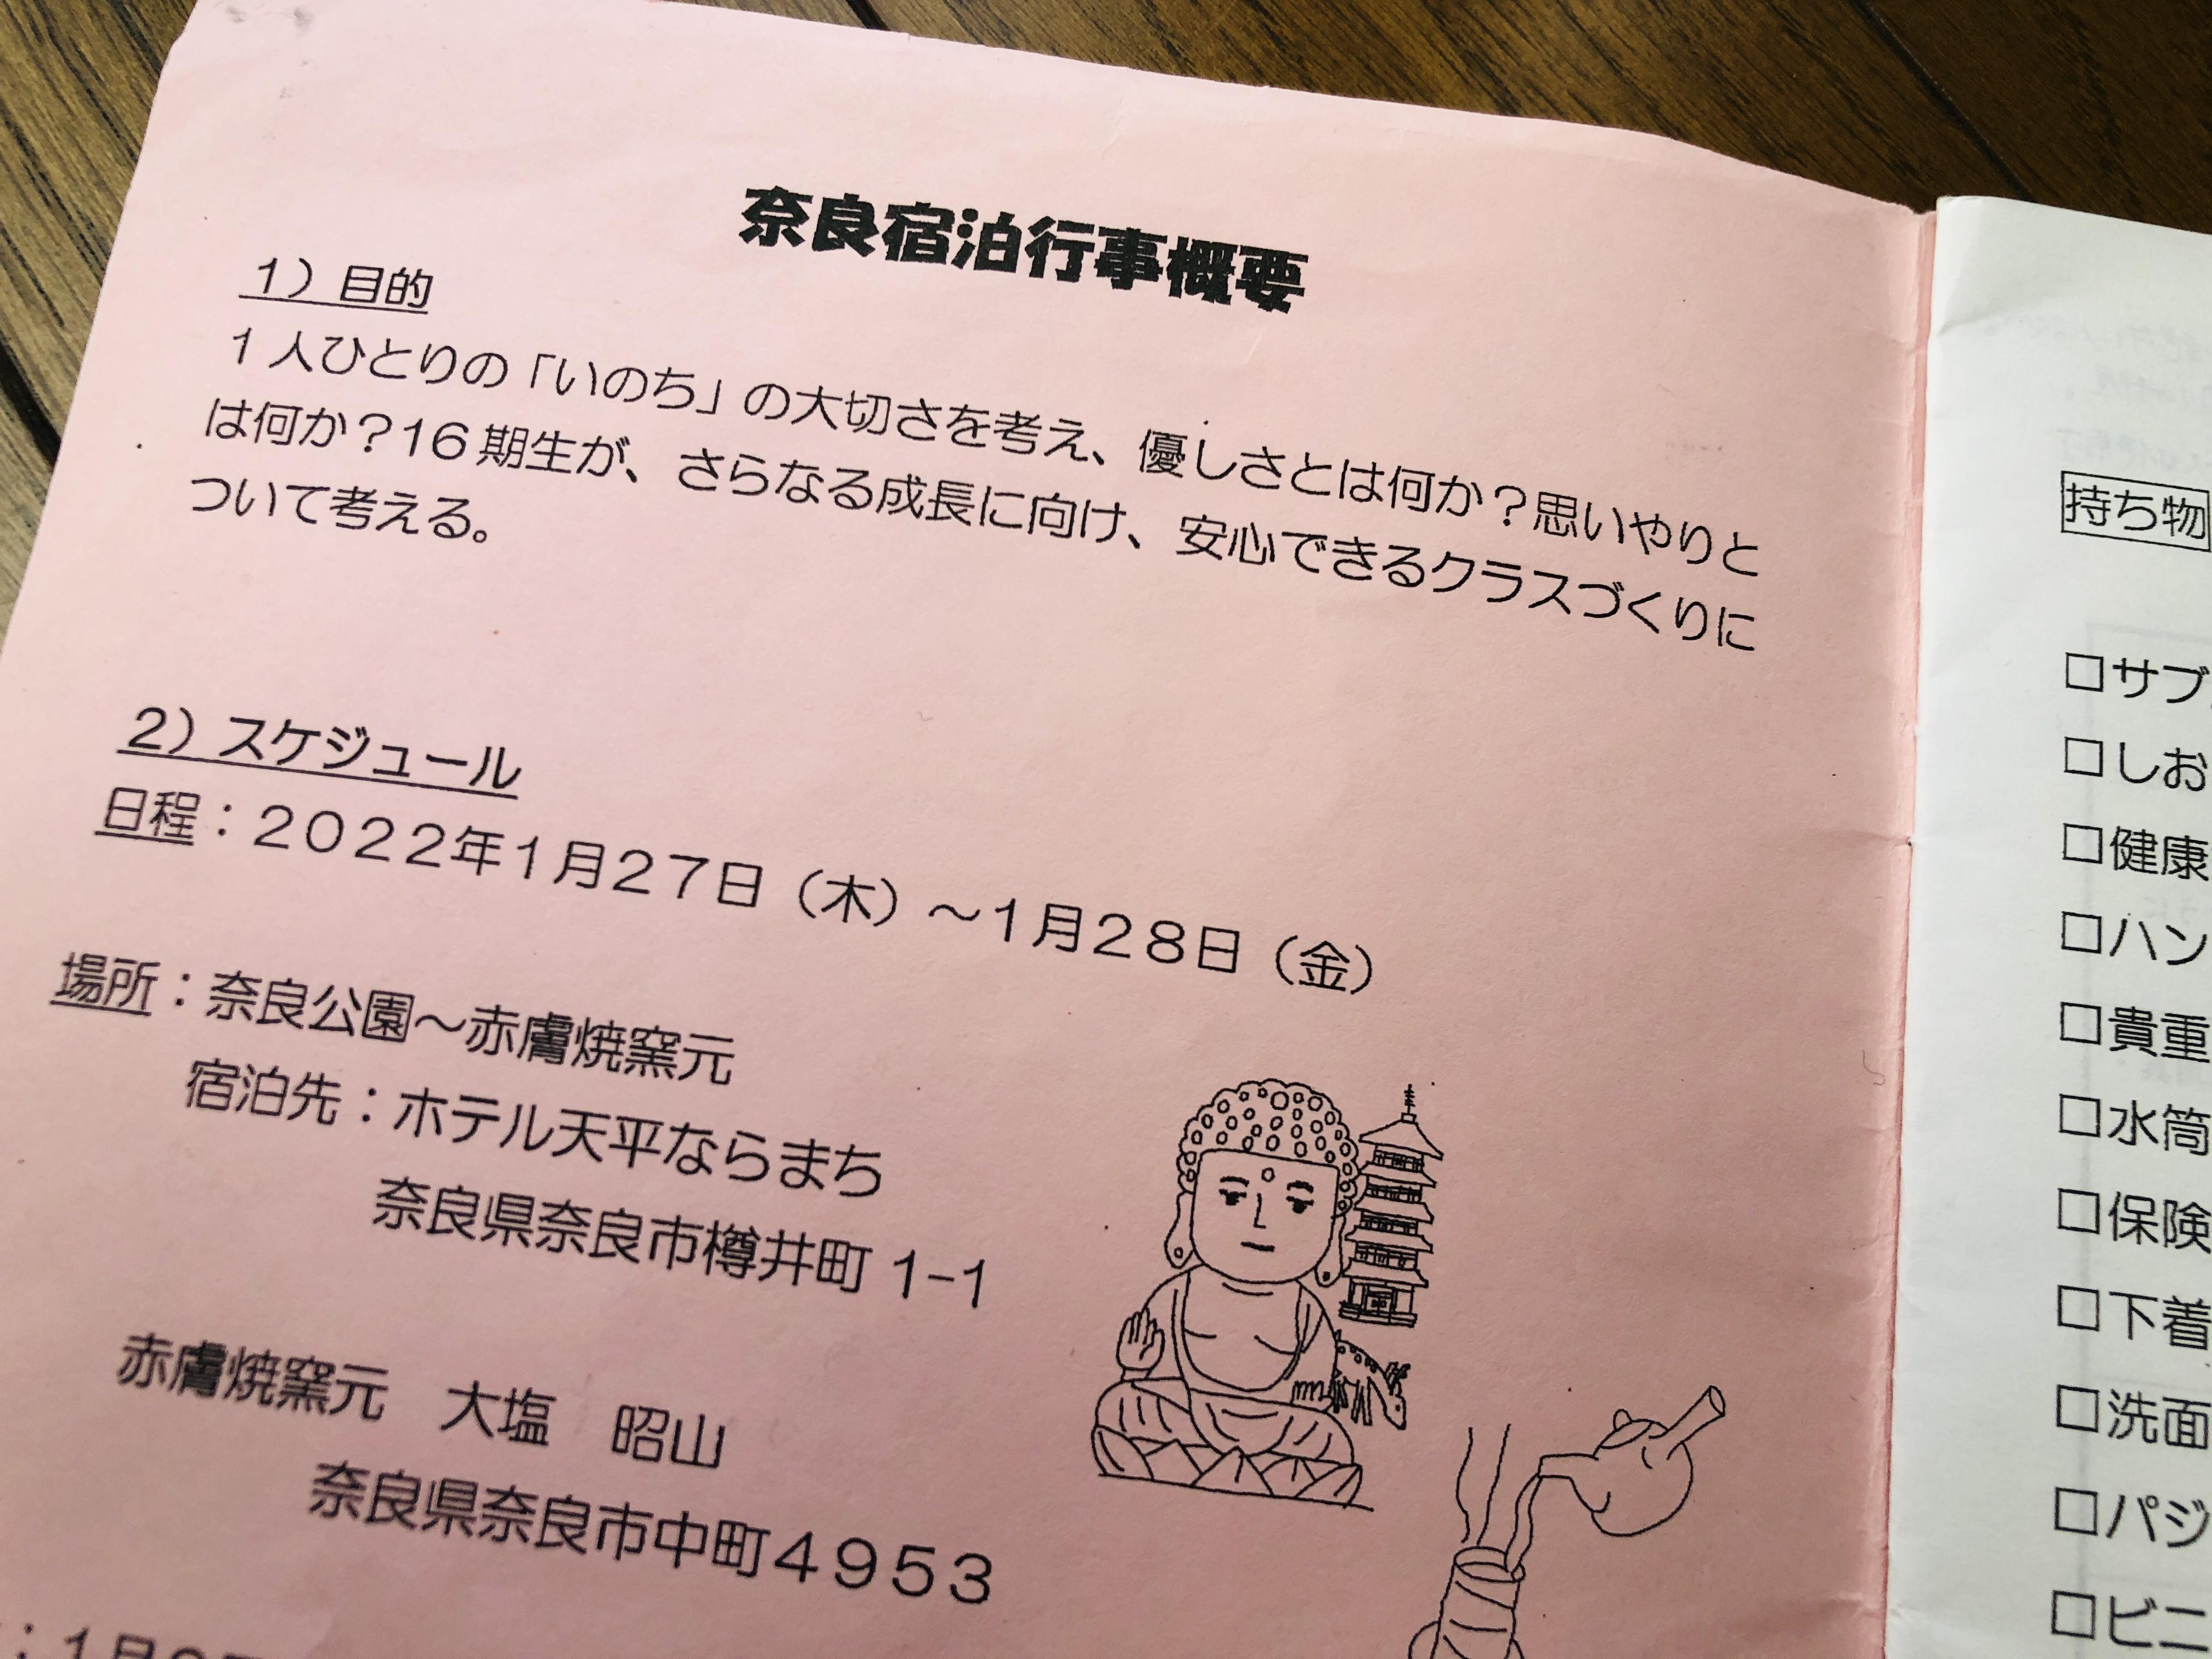 奈良宿泊行事概要
1）目的
1人ひとりの「いのち」の大切さを考え、優しさとは何か？思いやりと
は何か？16期生が、さらなる成長に向け、安心できるクラスづくりに
ついて考える。
2）スケジュール
日程：２０２２年１月２７日（木）～１月２８日（金）
場所：奈良公園～赤膚焼窯元
宿泊先：ホテル天平ならまち
奈良県奈良市樽井町 1-1
赤膚焼窯元　大塩　昭山
奈良県奈良市中町４９５３
：１月２７
持ち物
□サブ
□しお
□健康
□ハン
□貴重
□水筒
□保険
□下着
□洗面
□パジ
□ビニ